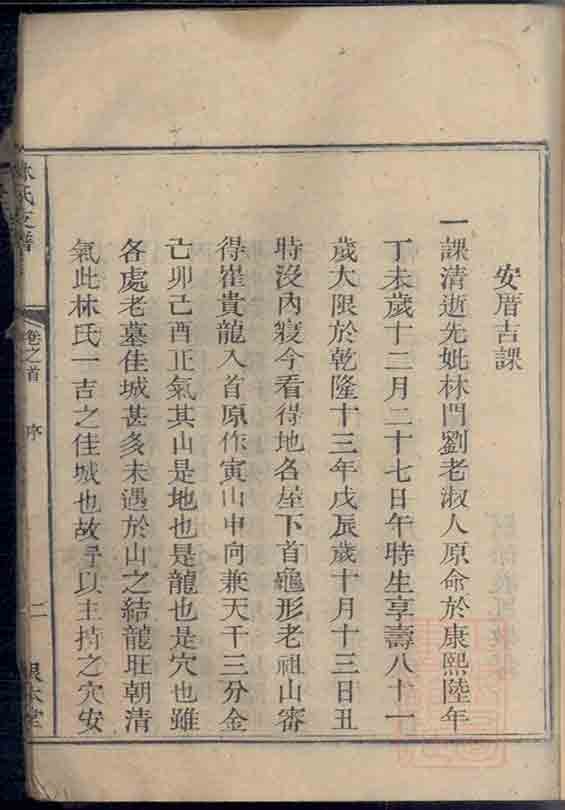 安厝吉課
一課清逝先妣林門劉老淑人原命於康熙陸年
丁未歲十二月二十七日午時生享壽八十一
歲大限於乾隆十三年戊辰歲十月十三日丑
時沒內寢今看得地名屋下首龜形老祖山審
得崔貴龍入首原作寅山申向兼天干三分金
己卯己酉正氣其山是地也是龍也是穴也雖
各處老墓佳城甚多未遇於山之結龍旺朝清
氣此林氏一吉之佳城也故予以主持之穴安
林氏支譜
卷之首
序
二